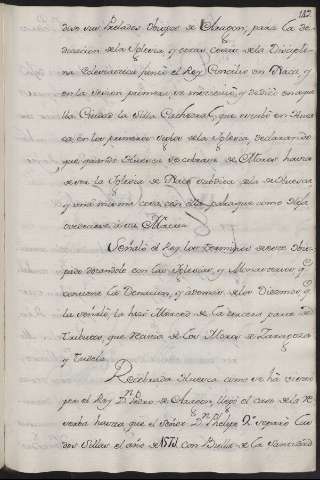 187.
diso sus Prelados Obispos de Aragon, para la de-
dicacion de la Yglesia, y otras cosas de la Discipli-
na Eclesiastica juntó el Rey Concilio en Jaca, y
en la sesion primera se instituió, y dedicó en aque-
lla Ciudad la Silla Cathedral, que estubo en Hues-
ca, en los primeros siglos de la Yglesia, declarando
que quando Huesca se cobrase de Moros havia
de ser la Yglesia de Jaca subdita de la de Huesca,
y una misma cosa con ella, para que como Hija
obedeciese á su Madre.
Señaló el Rey los terminos de este Obis-
pado dotandole con las Yglesias, y Monasterios q.e
contiene la Donacion, y ademas de los Diezmos q.e
le señaló, la hizo Merced de la tercera parte del
tributo, que tenia de los Moros de Zaragoza
y Tudela.
Recobrada Huesca como se há visto
por el Rey D.n Pedro de Aragon, llegó el caso de la Re-
serba hasta que el Señor D.n Phelipe 2.º separó las
dos Sillas el año de 1571 con Bulla de la Santidad